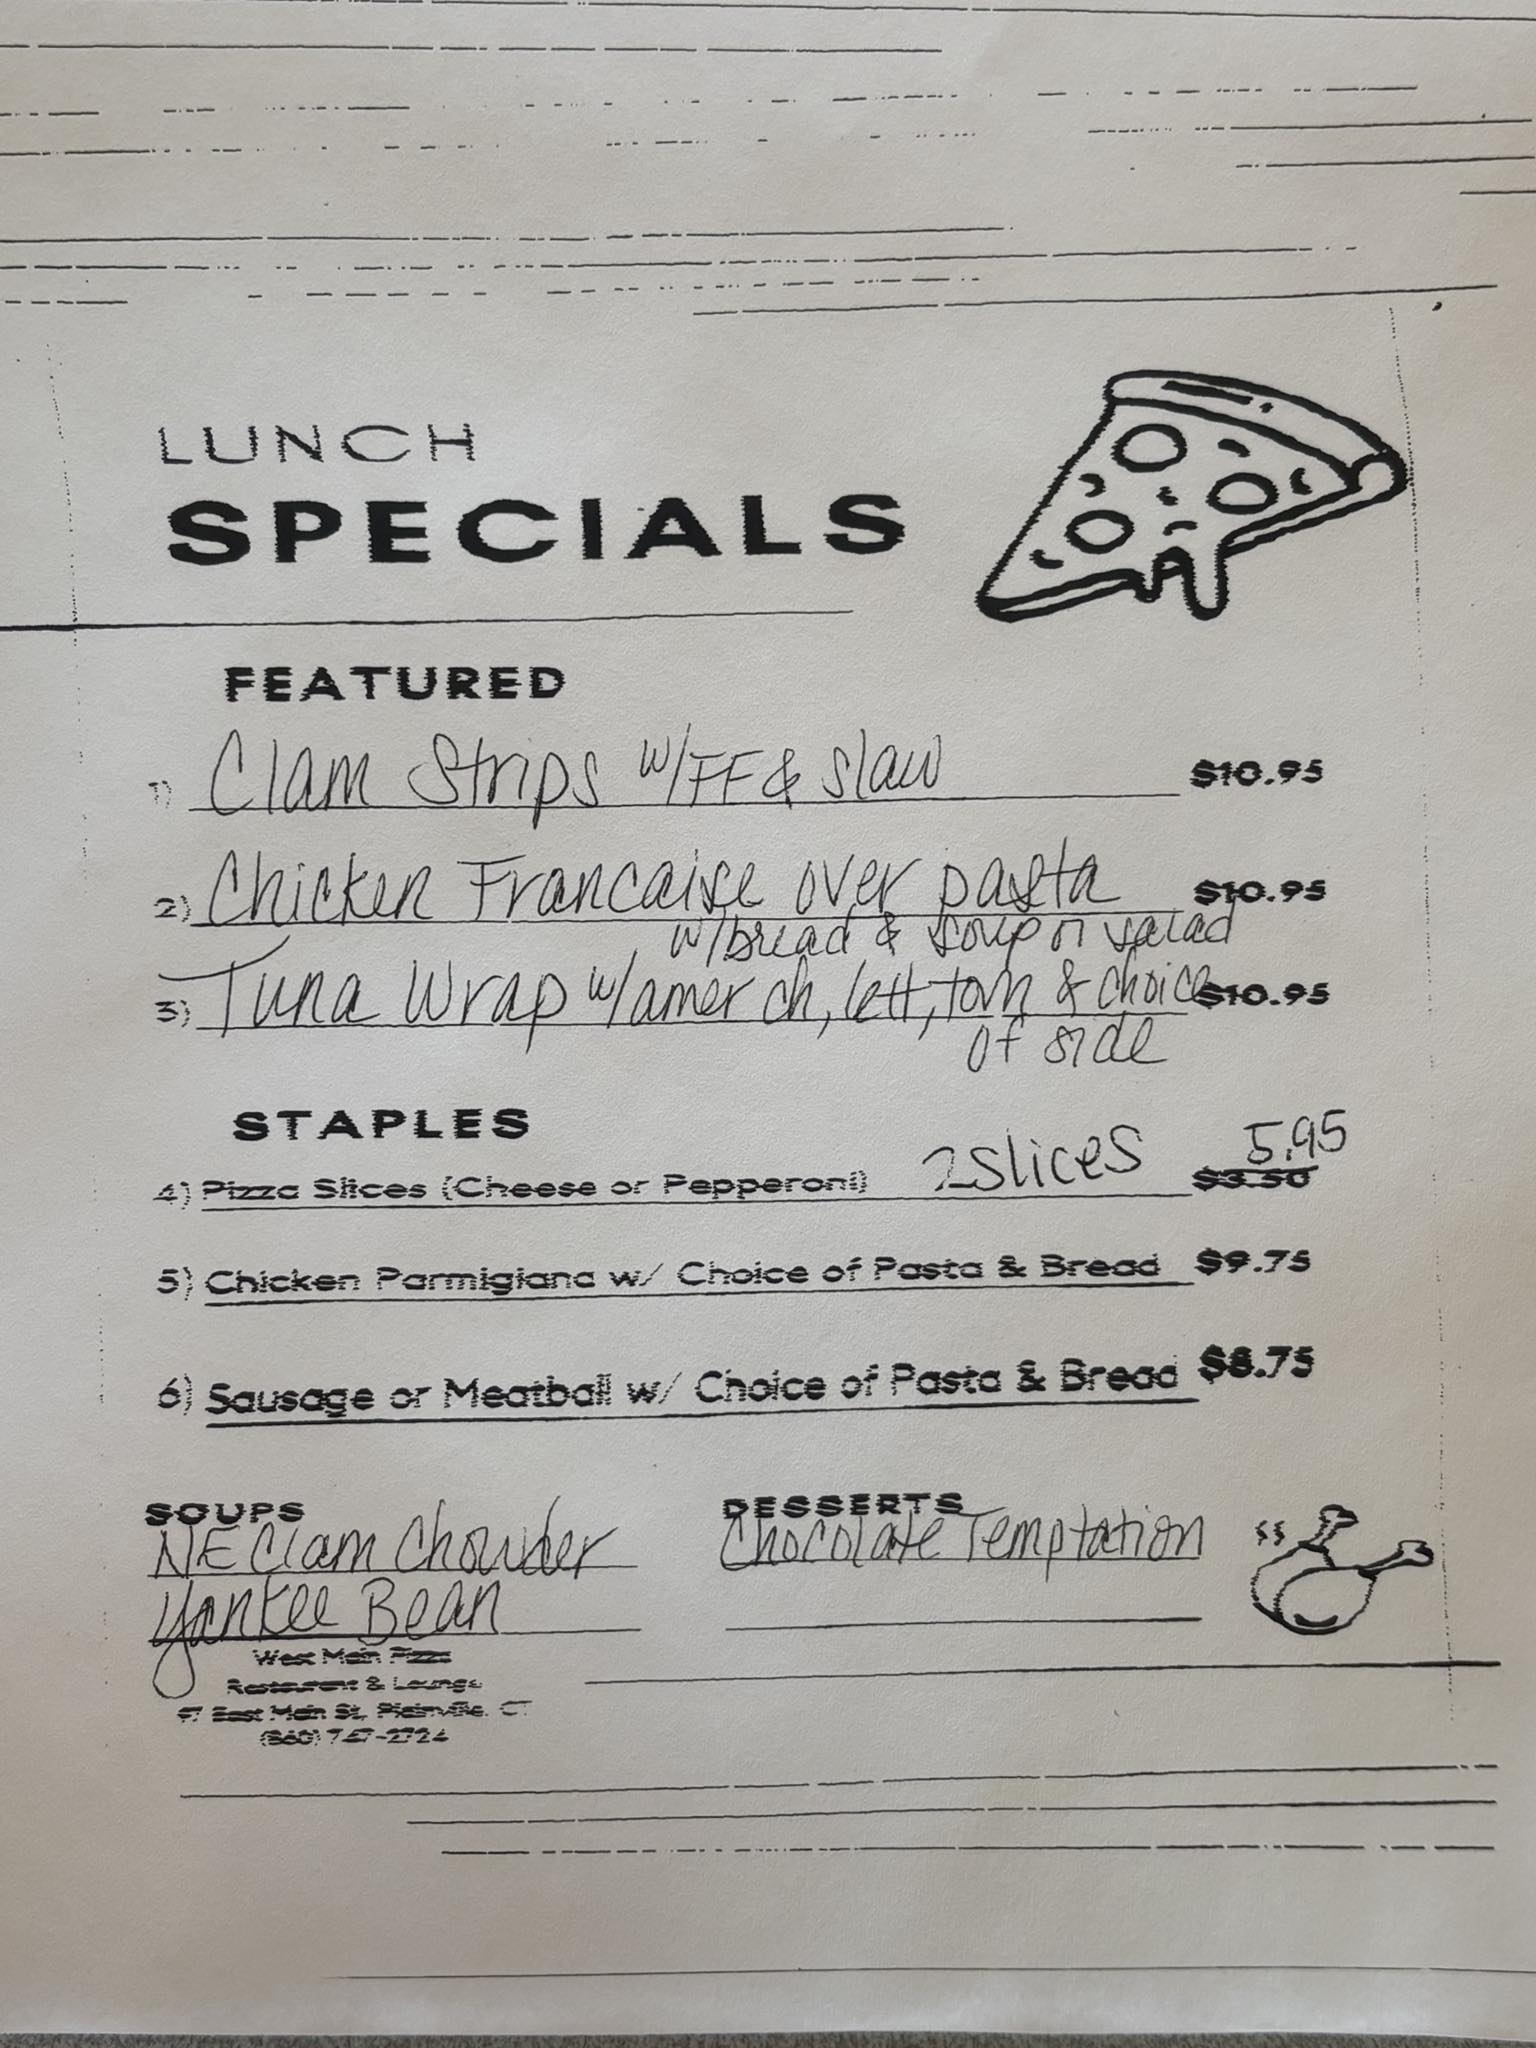 LUNCH
SPECIALS
FEATURED
1) Clam Strips w/FF & slaw $10.95
2) Chicken Francaise over pasta $10.95
w/bread & soup or salad
3) Tuna Wrap w/amer ch, lett, tom & choice $10.95
of side
STAPLES
4) Pizza Slices (Cheese or Pepperoni) 2 slices $3.50 5.95
5) Chicken Parmigiana w/ Choice of Pasta & Bread $9.75
6) Sausage or Meatball w/ Choice of Pasta & Bread $8.75
SOUPS
NE Clam Chowder
Yankee Bean
DESSERTS
Chocolate Temptation
West Main Pizza
Restaurant & Lounge
97 East Main St, Plainville, CT
(860) 747-2724